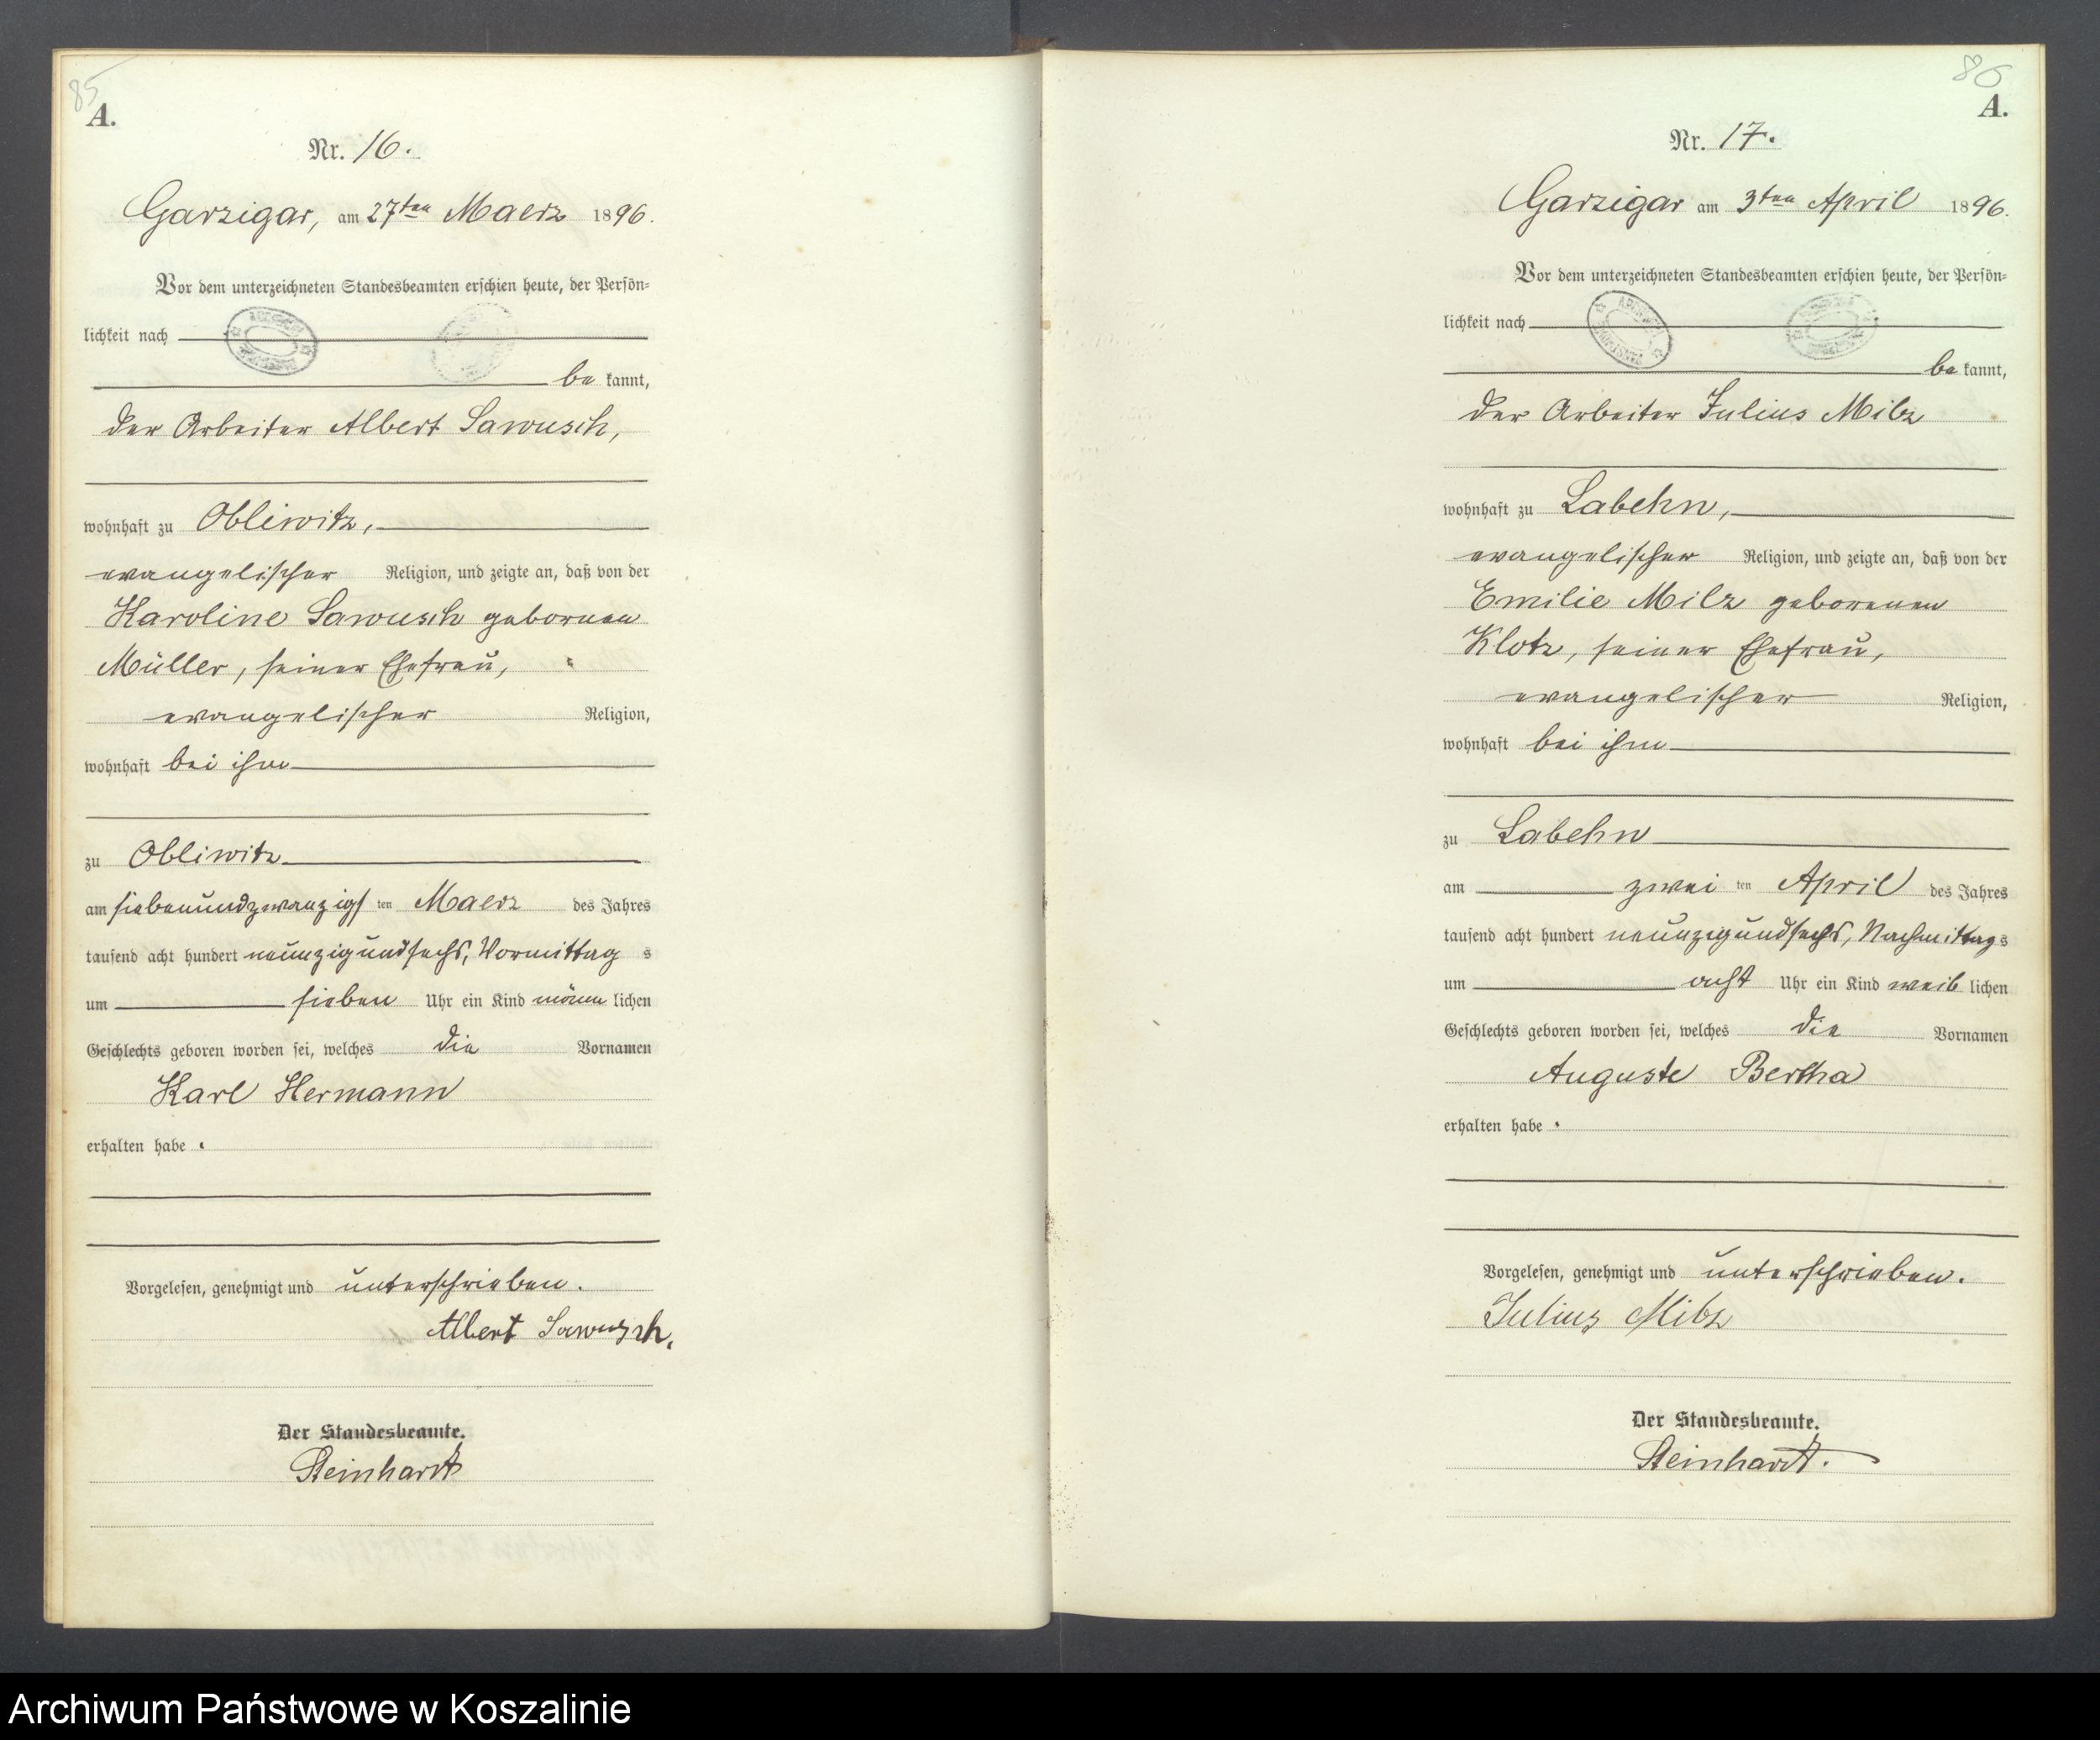 85
A.
Nr. 16.
Garzigar, am 27ten Maerz 1896.
Vor dem unterzeichneten Standesbeamten erschien heute, der Persön-
lichkeit nach
be kannt,
der Arbeiter Albert Sawusch,
wohnhaft zu Obliwitz,
evangelischer Religion, und zeigte an, daß von der
Karoline Sawusch gebornen
Müller, seiner Ehefrau,
evangelischer Religion,
wohnhaft bei ihm
zu Obliwitz
am siebenundzwanzigsten Maerz des Jahres
tausend acht hundert neunzigundsechs, Vormittags
um sieben Uhr ein Kind männlichen
Geschlechts geboren worden sei, welches die Vornamen
Karl Hermann
erhalten habe.
Vorgelesen, genehmigt und unterschrieben.
Albert Sawusch.
Der Standesbeamte.
Steinhardt
86
A.
Nr. 17.
Garzigar am 3ten April 1896.
Vor dem unterzeichneten Standesbeamten erschien heute, der Persön-
lichkeit nach
be kannt,
der Arbeiter Julius Milz
wohnhaft zu Labehn,
evangelischer Religion, und zeigte an, daß von der
Emilie Milz geborenen
Klotz, seiner Ehefrau,
evangelischer Religion,
wohnhaft bei ihm
zu Labehn
am zweiten April des Jahres
tausend acht hundert neunzigundsechs, Nachmittags
um acht Uhr ein Kind weiblichen
Geschlechts geboren worden sei, welches die Vornamen
Auguste Bertha
erhalten habe.
Vorgelesen, genehmigt und unterschrieben.
Julius Milz
Der Standesbeamte.
Steinhardt.
Archiwum Państwowe w Koszalinie